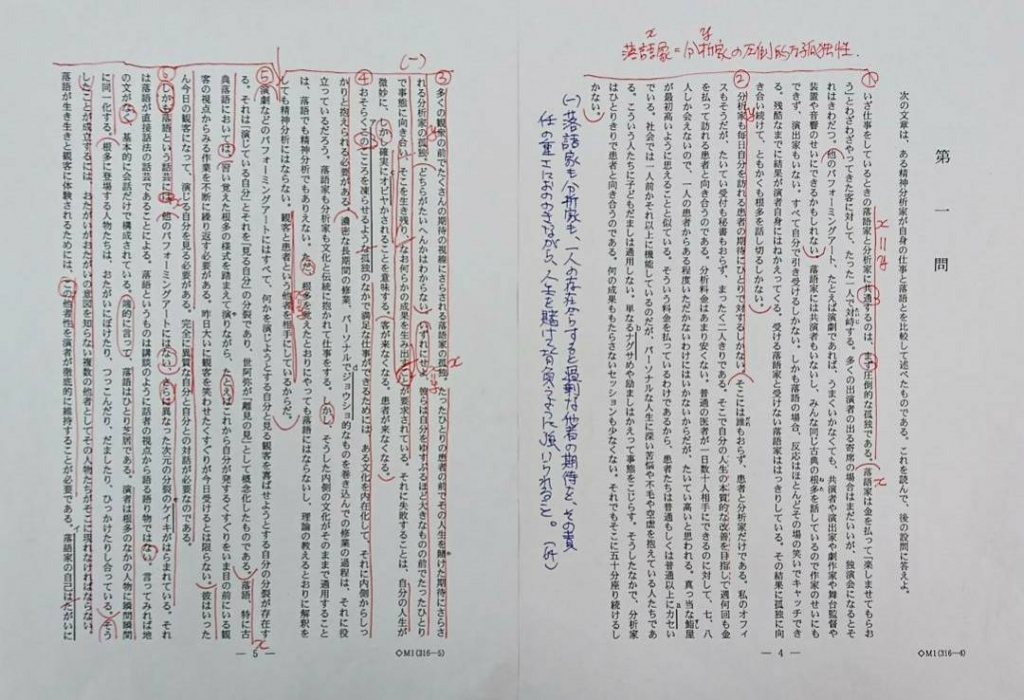 x y
落語家＝分析家の圧倒的な孤独性.
第一問
次の文章は、ある精神分析家が自身の仕事と落語とを比較して述べたものである。これを読んで、後の設問に答えよ。
① いざ仕事をしているときの落語家と分析家に共通するのは、まず圧倒的な孤独である。落語家は金を払って「楽しませてもらお
う」とわざわざやってきた客に対して、たった一人で対峙する。多くの出演者の出る寄席の場合はまだいいが、独演会になるとそ
れはきわだつ。他のパフォーミングアート、たとえば演劇であれば、うまくいかなくても、共演者や演出家や劇作家や舞台監督や
装置や音響のせいにできるかもしれない。落語家には共演者もいないし、みんな同じ古典の根多を話しているので作家のせいにも
できず、演出家もいない。すべて自分で引き受けるしかない。しかも落語の場合、反応はほとんどその場の笑いでキャッチでき
る。残酷なまでに結果が演者自身にはねかえってくる。受ける落語家と受けない落語家ははっきりしている。その結果に孤独に向
き合い続けて、ともかくも根多を話し切るしかない。
② 分析家も毎日自分を訪れる患者の期待にひとりで対するしかない。そこには誰もおらず、患者と分析家だけである。私のオフィ
スもそうだが、たいてい受付も秘書もおらず、まったく二人きりである。そこで自分の人生の本質的な改善を目指して週何回も金
を払って訪れる患者と向き合うのである。分析料金はあまり安くない。普通の医者が一日数十人相手にできるのに対して、七、八
人しか会えないので、一人の患者からある程度いただかないわけにはいかないからだが、たいてい高いと思われる。真っ当な鮨屋
が最初高いように思えることと似ている。そういう料金を払っているわけであるから、患者たちは普通もしくは普通以上にカセい
でいる。社会では一人前かそれ以上に機能しているのだが、パーソナルな人生に深い苦悩や不毛や空虚を抱えている人たちであ
る。こういう人たちに子どもだましは通用しない。単なるナグサめや励ましはかえって事態をこじらす。そうしたなかで、分析家
はひとりきりで患者と向き合うのである。何の成果ももたらさないセッションも少なくない。それでもそこに五十分座り続けるし
かない。
(一) 落語家も分析家も、一人の存在からすると過剰な他者の期待を、その責
任の重さにおののきながら、人生を賭けて背負うように強いられること。
— 4 —
◇M1(316—4)
(一)
③ 多くの観衆の前でたくさんの期待の視線にさらされる落語家の孤独。たったひとりの患者の前でその人生を賭けた期待にさらさ
れる分析家の孤独。どちらがたいへんかはわからない。いずれにせよ、彼らは自分をゆすぶるほど大きなものの前でたったひとり
で事態に向き合い、そこを生き残り、なお何らかの成果を生み出すことが要求されている。それに失敗することは、自分の人生が
微妙に、しかし確実にオビヤかされることを意味する。客が来なくなる。患者が来なくなる。
④ おそらくこのこころを凍らせるような孤独のなかで満足な仕事ができるためには、ある文化を内在化して、それに内側からしっ
かりと抱えられる必要がある。濃密な長期間の修業、パーソナルでジョウショ的なものを巻き込んでの修業の過程は、それに役
立っているだろう。落語家も分析家も文化と伝統に抱かれて仕事をする。しかし、そうした内側の文化がそのままで通用すること
は、落語でも精神分析でもありえない。ただ、根多を覚えたとおりにやっても落語にはならないし、理論の教えるとおりに解釈を
しても精神分析にはならない。観客と患者という他者を相手にしているからだ。
⑤ 演劇などのパフォーミングアートにはすべて、何かを演じようとする自分と見る観客を喜ばせようとする自分の分裂が存在す
る。それは「演じている自分」とそれを「見る自分」の分裂であり、世阿弥が「離見の見」として概念化したものである。落語、特に古
典落語においては、習い覚えた根多の様式を踏まえて演りながら、たとえばこれから自分が発するくすぐりをいま目の前にいる観
客の視点からみる作業を不断に繰り返す必要がある。昨日大いに観客を笑わせたくすぐりが今日受けるとは限らない。彼はいった
ん今日の観客になって、演じる自分を見る必要がある。完全に異質な自分と自分との対話が必要なのである。
⑥ しかも落語という話芸には、他のパフォーミングアートにはない、さらに異なった次元の分裂のケイキがはらまれている。それ
は落語が直接話法の話芸であることによる。落語というものは講談のように話者の視点から語る語り物ではない。言ってみれば地
の文がなく、基本的に会話だけで構成されている。端的に言って、落語はひとり芝居である。演者は根多のなかの人物に瞬間瞬間
に同一化する。根多に登場する人物たちは、おたがいにぼけたり、つっこんだり、だましたり、ひっかけたりし合っている。そう
したことが成立するには、おたがいがおたがいの意図を知らない複数の他者としてその人物たちがそこに現れなければならない。
落語が生き生きと観客に体験されるためには、この他者性を演者が徹底的に維持することが必要である。落語家の自己はたがいに
— 5 —
◇M1(316—5)